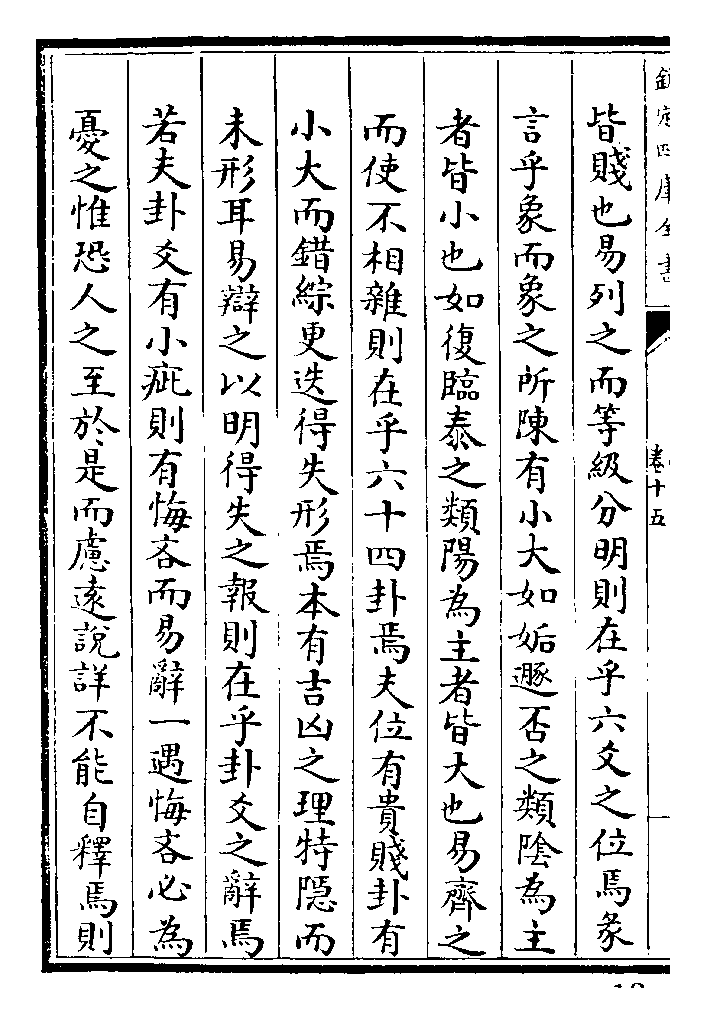 欽定四庫全書
卷十五
皆賤也易列之而等級分明則在乎六爻之位焉彖
言乎象而象之所陳有小大如姤遯否之類陰為主
者皆小也如復臨泰之類陽為主者皆大也易齊之
而使不相雜則在乎六十四卦焉夫位有貴賤卦有
小大而錯綜更迭得失形焉本有吉凶之理特隱而
未形耳易辯之以明得失之報則在乎卦爻之辭焉
若夫卦爻有小疵則有悔吝而易辭一遇悔吝必為
憂之惟恐人之至於是而慮遠說詳不能自釋焉則